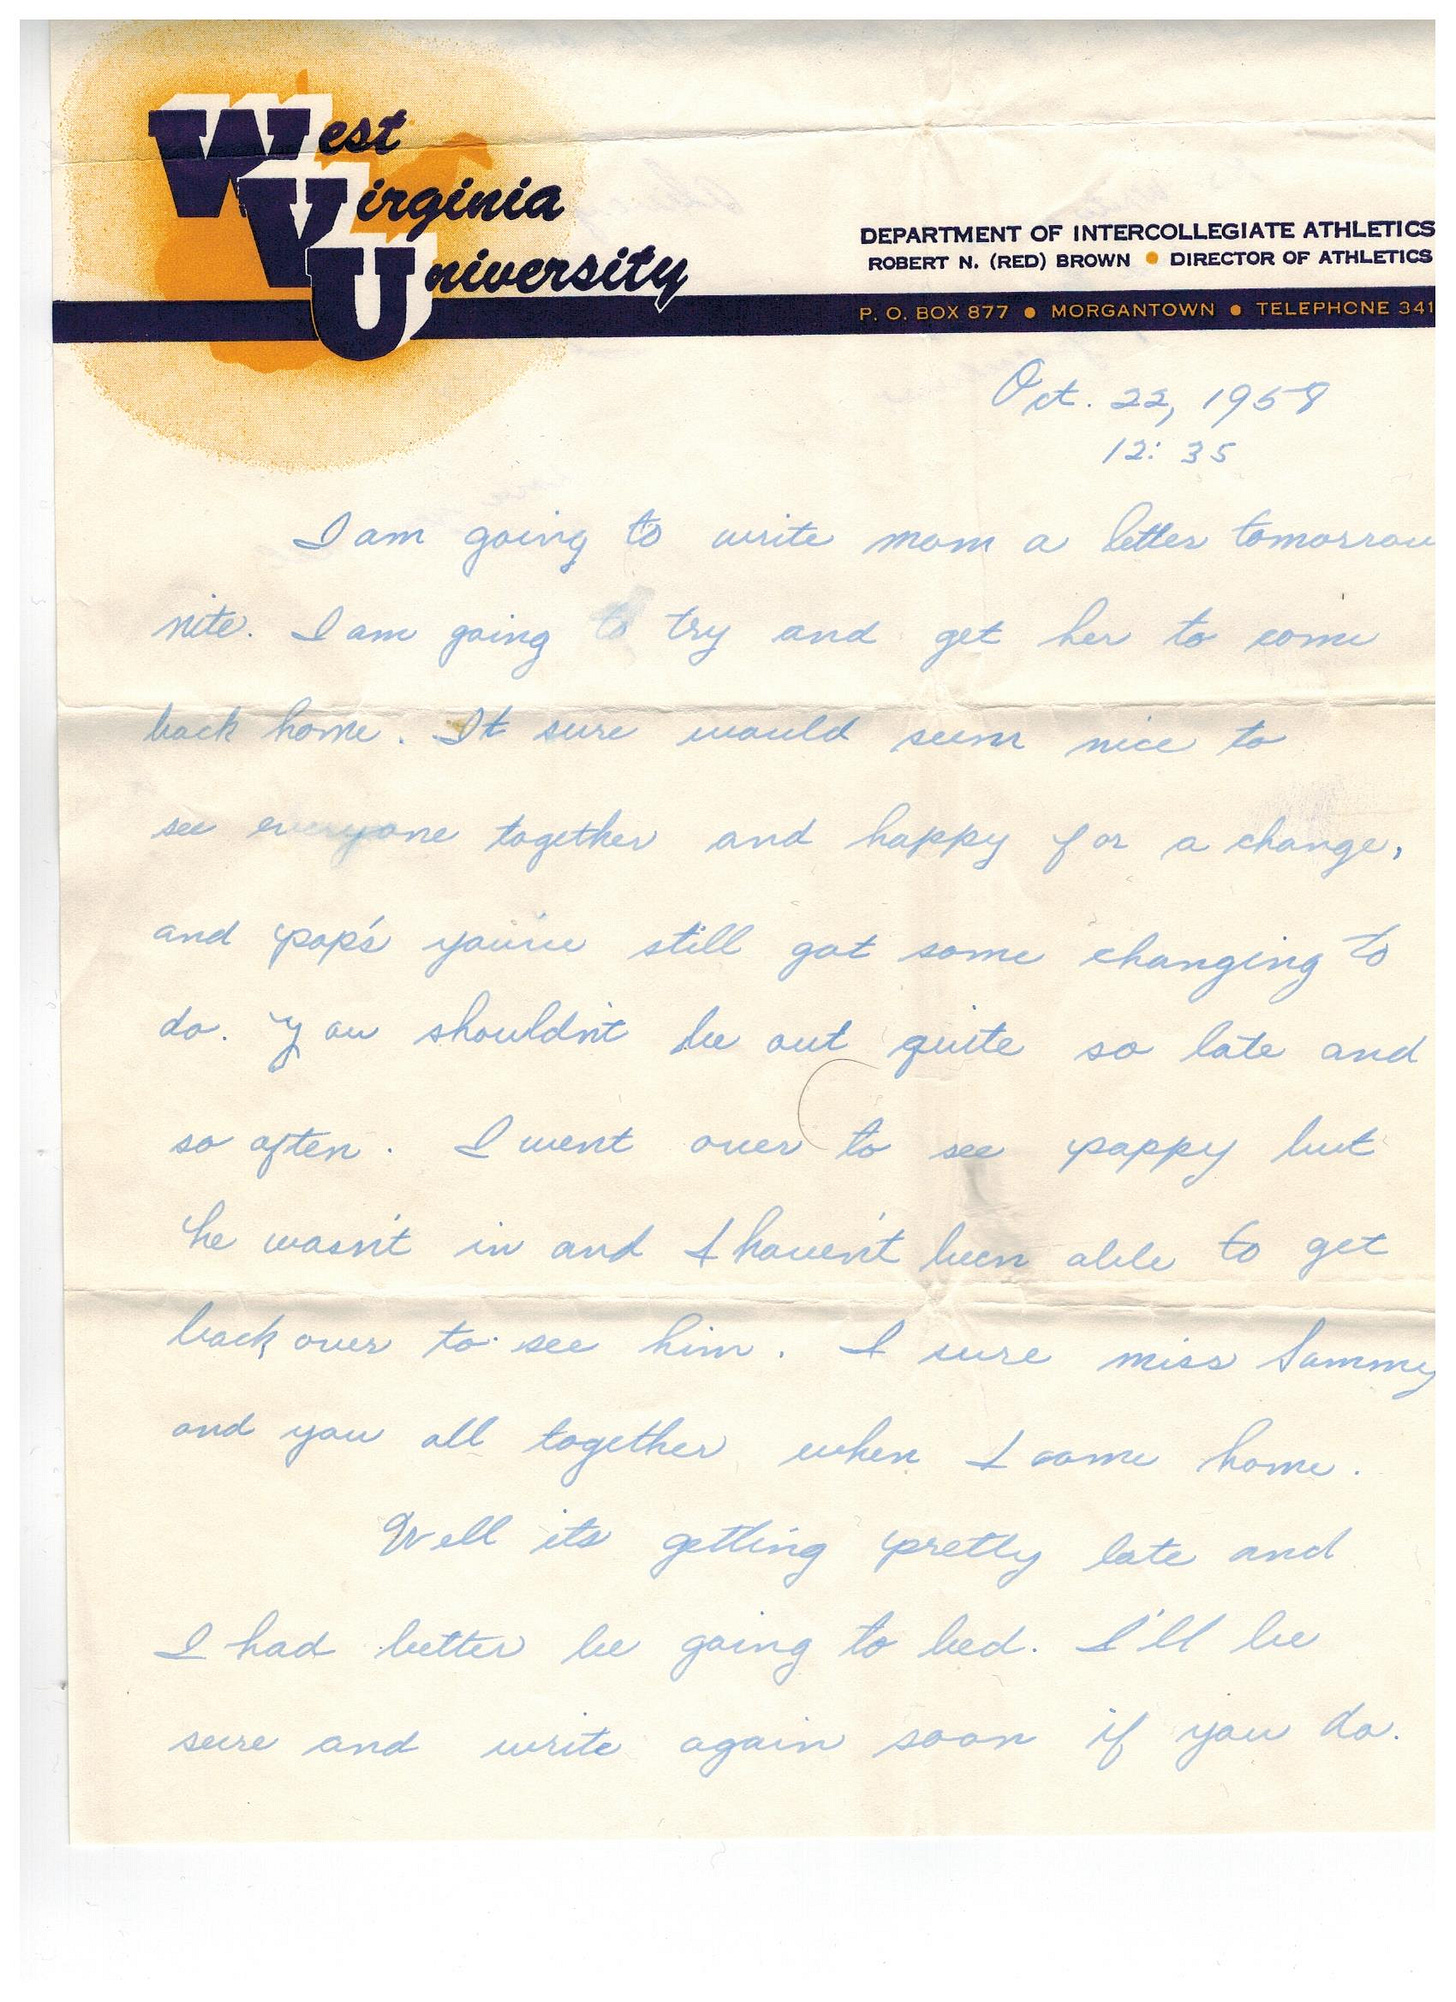 West
Virginia
University
DEPARTMENT OF INTERCOLLEGIATE ATHLETICS
ROBERT N. (RED) BROWN • DIRECTOR OF ATHLETICS
P. O. BOX 877 • MORGANTOWN • TELEPHONE 341
Oct. 22, 1958
12:35
I am going to write mom a letter tomorrow
nite. I am going to try and get her to come
back home. It sure would seem nice to
see everyone together and happy for a change,
and pop's you've still got some changing to
do. You shouldn't be out quite so late and
so often. I went over to see pappy but
he wasn't in and I haven't been able to get
back over to see him. I sure miss Sammy
and you all together when I come home.
Well its getting pretty late and
I had better be going to bed. I'll be
sure and write again soon if you do.